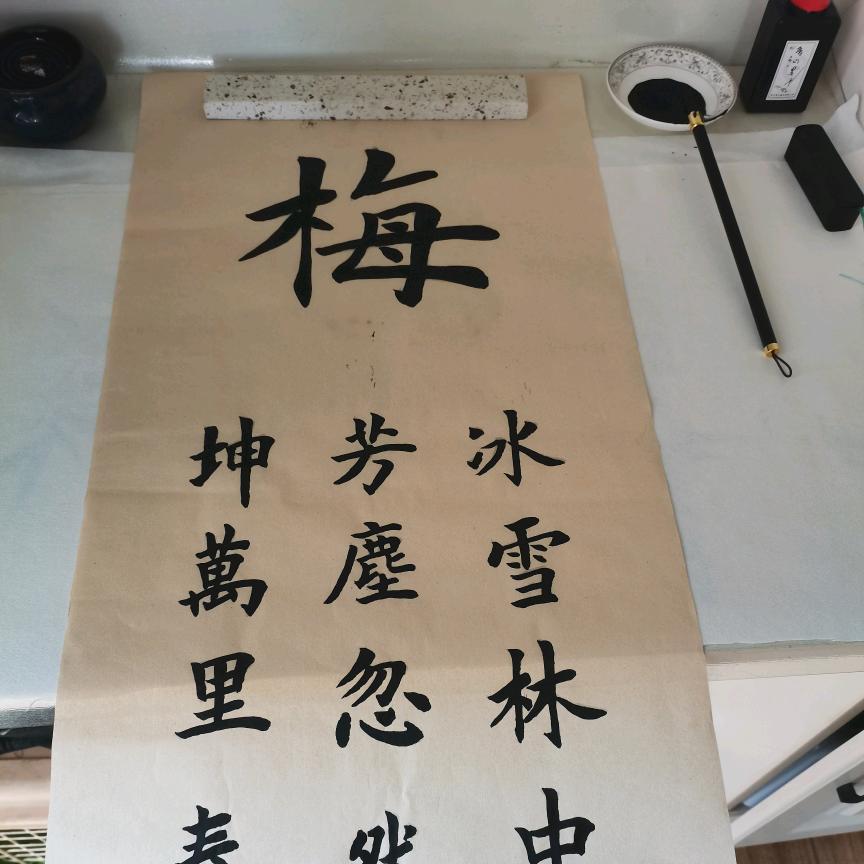 梅
冰雪林中
芳塵忽然
坤萬里春